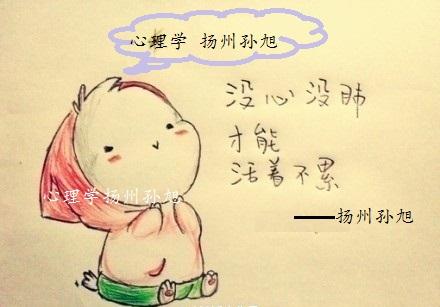 心理学 扬州孙旭
没心没肺
才能
活着不累
心理学扬州孙旭
——扬州孙旭